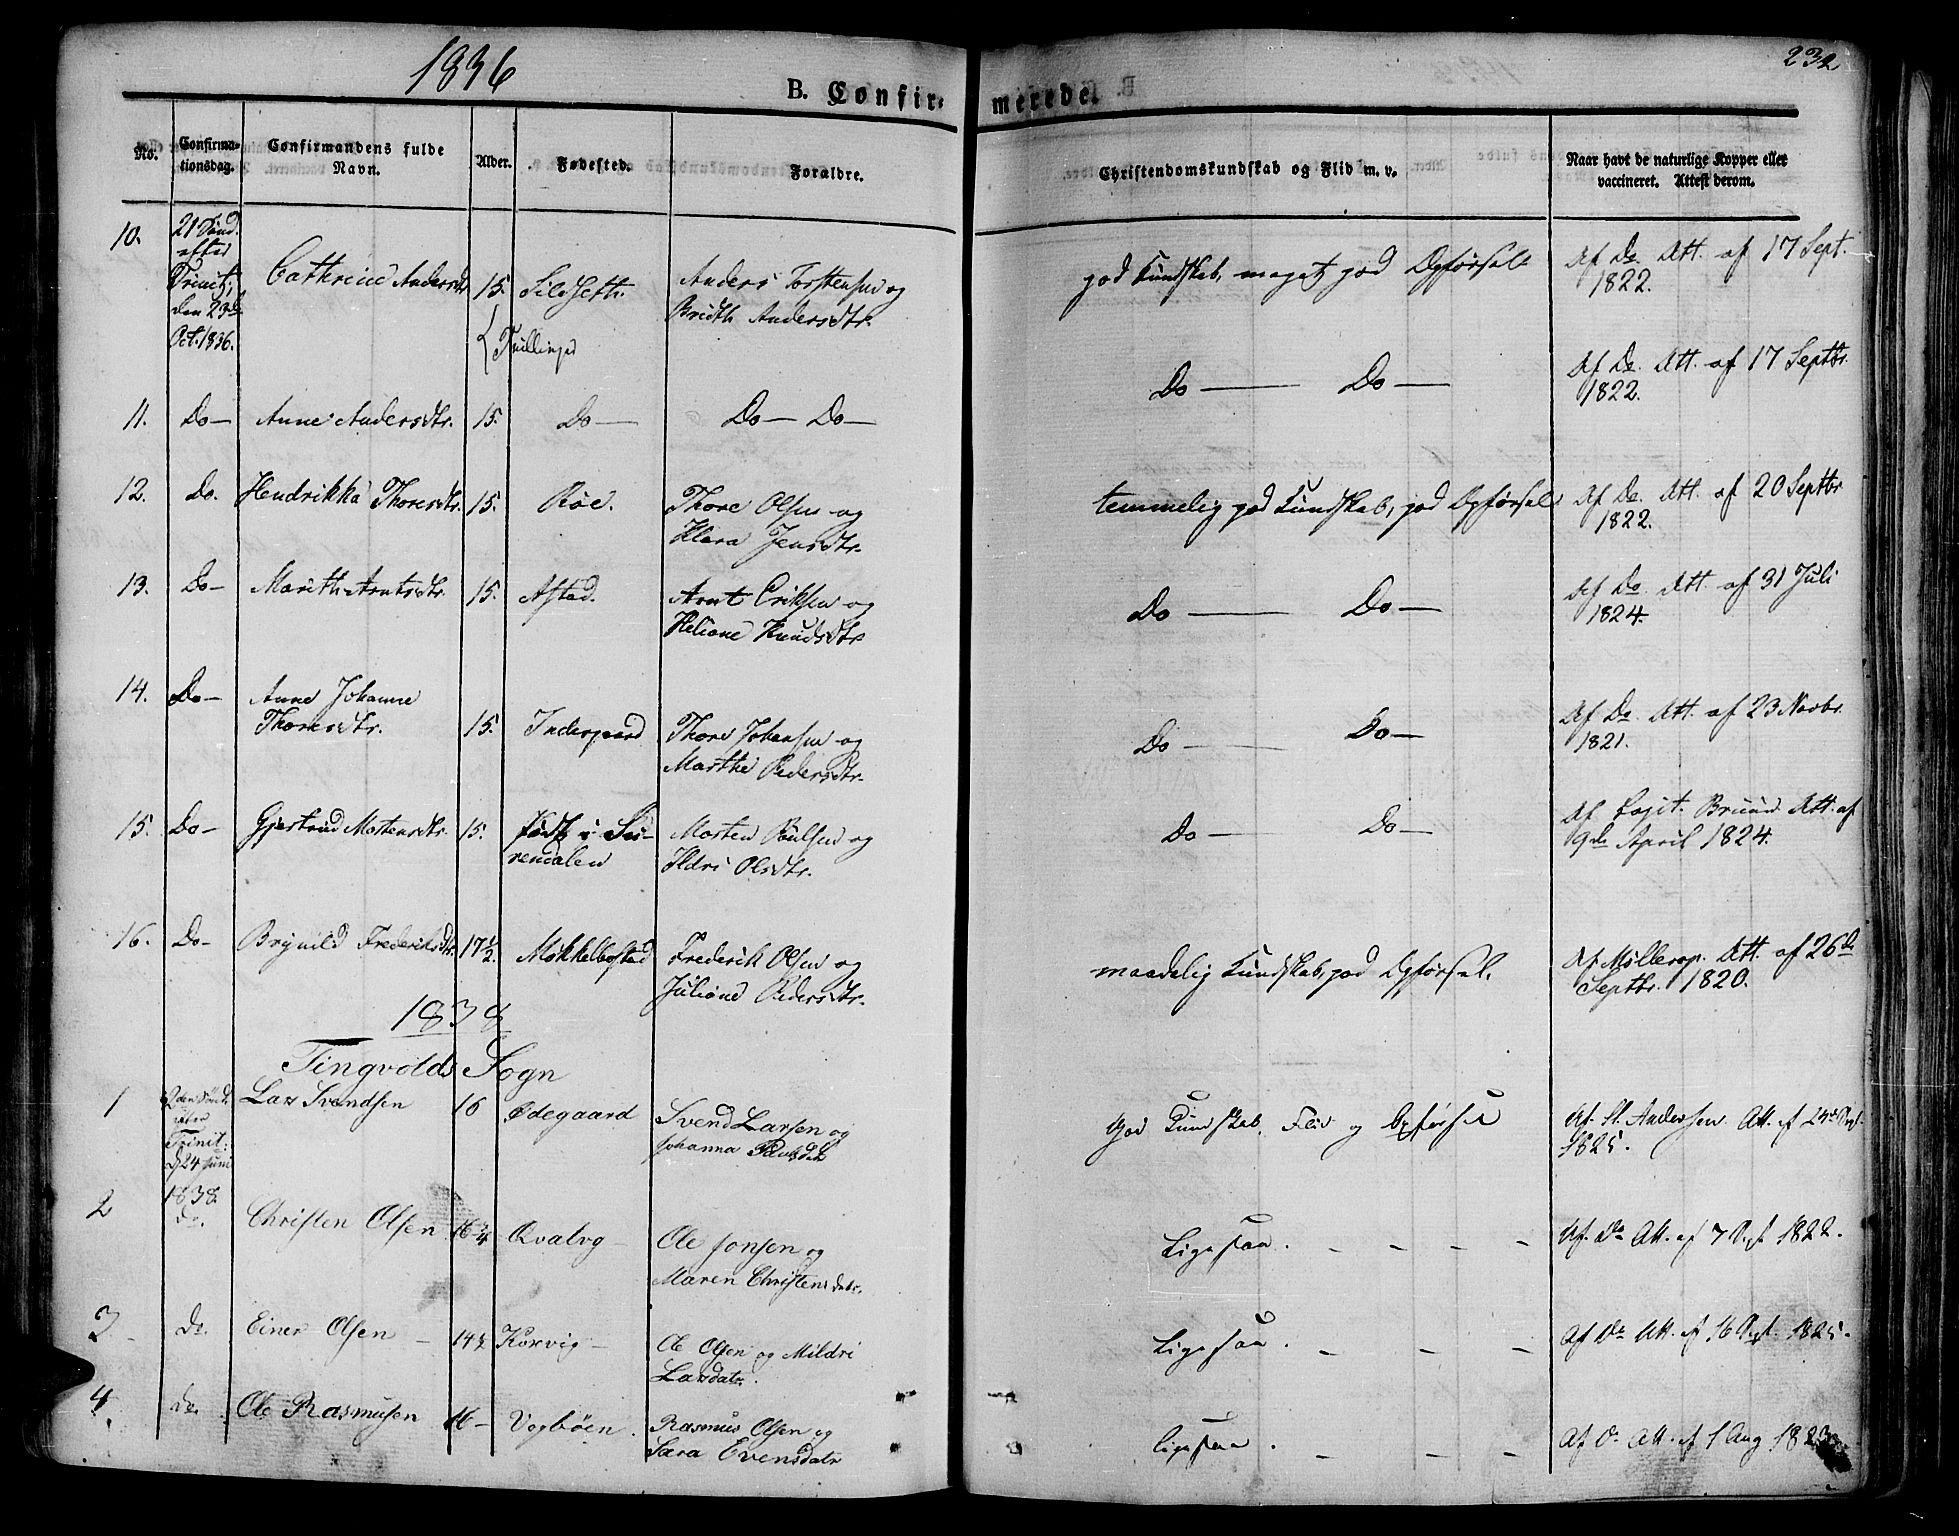 1836
232
B. Confirmerede.
No.
Confirma-
tionsdag.
Confirmandens fulde
Navn.
Alder.
Fødested.
Forældre.
Christendomskundskab og Flid m. v.
Naar havt de naturlige Kopper eller
vaccineret. Attest derom.
10. 21 Sønd. efter Trinit; den 23de Oct. 1836. Cathrine Andersdtr 15. Sildseth. Anders Torstensen og
Bridth Andersdtr. god Kundskab, meget god Opførsel Af Do. Att. af 17 Sept.
1822.
{ Tvillinger
11. Do— Anne Andersdtr. 15. Do— Do— Do— Do— Do— Af Do. Att. af 17 Septbr.
1822.
12. Do. Hendrikka Thoresdtr. 15. Röe. Thore Olsen og
Klara Jensdtr. temmelig god Kundskab, god Opførsel Af Do. Att. af 20 Septbr
1822.
13. Do— Marith Arntsdtr. 15. Afstad. Arnt Eriksen og
Heliane Knudsdtr Do— Do— Af Do. Att. af 31 Juli
1824.
14. Do— Anne Johanne
Thoresdtr. 15. Indergaard Thore Johansen og
Marthe Pedersdtr. Do— Do— Af Do. Att. af 23 Novbr.
1821.
15. Do— Gjertrud Mortensdtr. 15. født i Su-
rendalen Morten Poulsen og
Ildri Olsdtr. Do— Do— Af Bruun Att. af
9de April 1824.
16. Do— Brynild Frederiksdtr. 17½ Mökkelbostad Frederik Olsen og
Juliane Pedersdtr. maadelig Kundskab, god Opførsel. Af Möllerop. Att. af 26de
Septbr. 1820.
1838
Tingvolds Sogn
1 2den Sönd. efter Trinit: d 24 Juni 1838. Lars Svendsen 16 Ödegaard Svend Larsen og
Johanna God Kundskab, Flid og Opførsel Af St. Andersen Att. af
1825.
2 do. Christen Olsen 16¼ Qvalvg— Ole Jonsen og
Maren Christensdatr. Ligesaa. - - - - Af Do Att. af 7 Sept 1822.
3 do. Einer Olsen — 14½ Korsvig— Ole Olsen og Mildri
Larsdatr. Ligesaa. - - - Af Do Att. af 16 Sept. 1825.
4 do. Ole Rasmusen 16— Vogböen. Rasmus Olsen og
Sara Evensdatr Ligesaa. - - - Af Do Att. af 1 Aug 1823